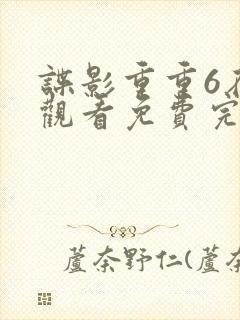 諜影重重6
觀看免費完
蘆奈野仁(蘆奈